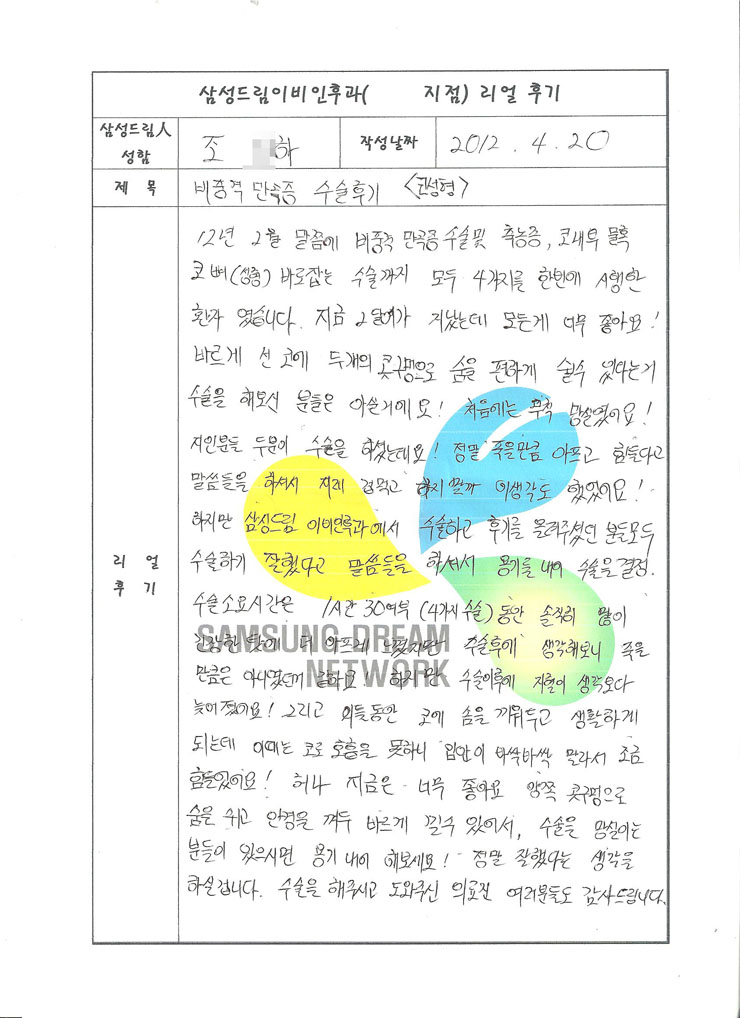 삼성드림이비인후과(     지점) 리얼 후기
삼성드림人
성함
조 하
작성날짜
2012. 4. 20
제 목
비중격 만곡증 수술후기 <코성형>
리 얼
후 기
12년 2월 말쯤에 비중격 만곡증 수술및 축농증, 코내부 물혹
코뼈(성형) 바로잡는 수술까지 모두 4가지를 한번에 시행한
환자 였습니다. 지금 2달여가 지났는데 모든게 너무 좋아요!
바르게 선 코에 두개의 콧구멍으로 숨을 편하게 쉴수 있다는거
수술을 해보신 분들은 아실거에요! 처음에는 무척 망설였어요!
지인분들 두분이 수술을 하셨는데요! 정말 죽을만큼 아프고 힘들다고
말씀들을 하셔서 지레 겁먹고 하지말까 이생각도 했었어요!
하지만 삼성드림 이비인후과에서 수술하고 후기를 올려주셨던 분들모두
수술하기 잘했다고 말씀들을 하셔서 용기를 내어 수술을 결정.
수술소요시간은 1시간 30여부 (4가지 수술) 동안 솔직히 많이
긴장한 탓에 더 아프게 느꼈지만 수술후에 생각해보니 죽을
만큼은 아니였던거 같아요! 하지만 수술이후에 지혈이 생각보다
늦어졌어요! 그리고 이틀동안 코에 솜을 끼워두고 생활하게
되는데 이때는 코로 호흡을 못하니 입안이 바싹바싹 말라서 조금
힘들었어요! 허나 지금은 너무 좋아요 양쪽 콧구멍으로
숨을 쉬고 안경을 껴두 바르게 낄수 있어서, 수술을 망실이는
분들이 있으시면 용기 내어 해보세요! 정말 잘했다는 생각을
하실겁니다. 수술을 해주시고 도와주신 의료진 여러분들도 감사드립니다.
SAMSUNG DREAM
NETWORK